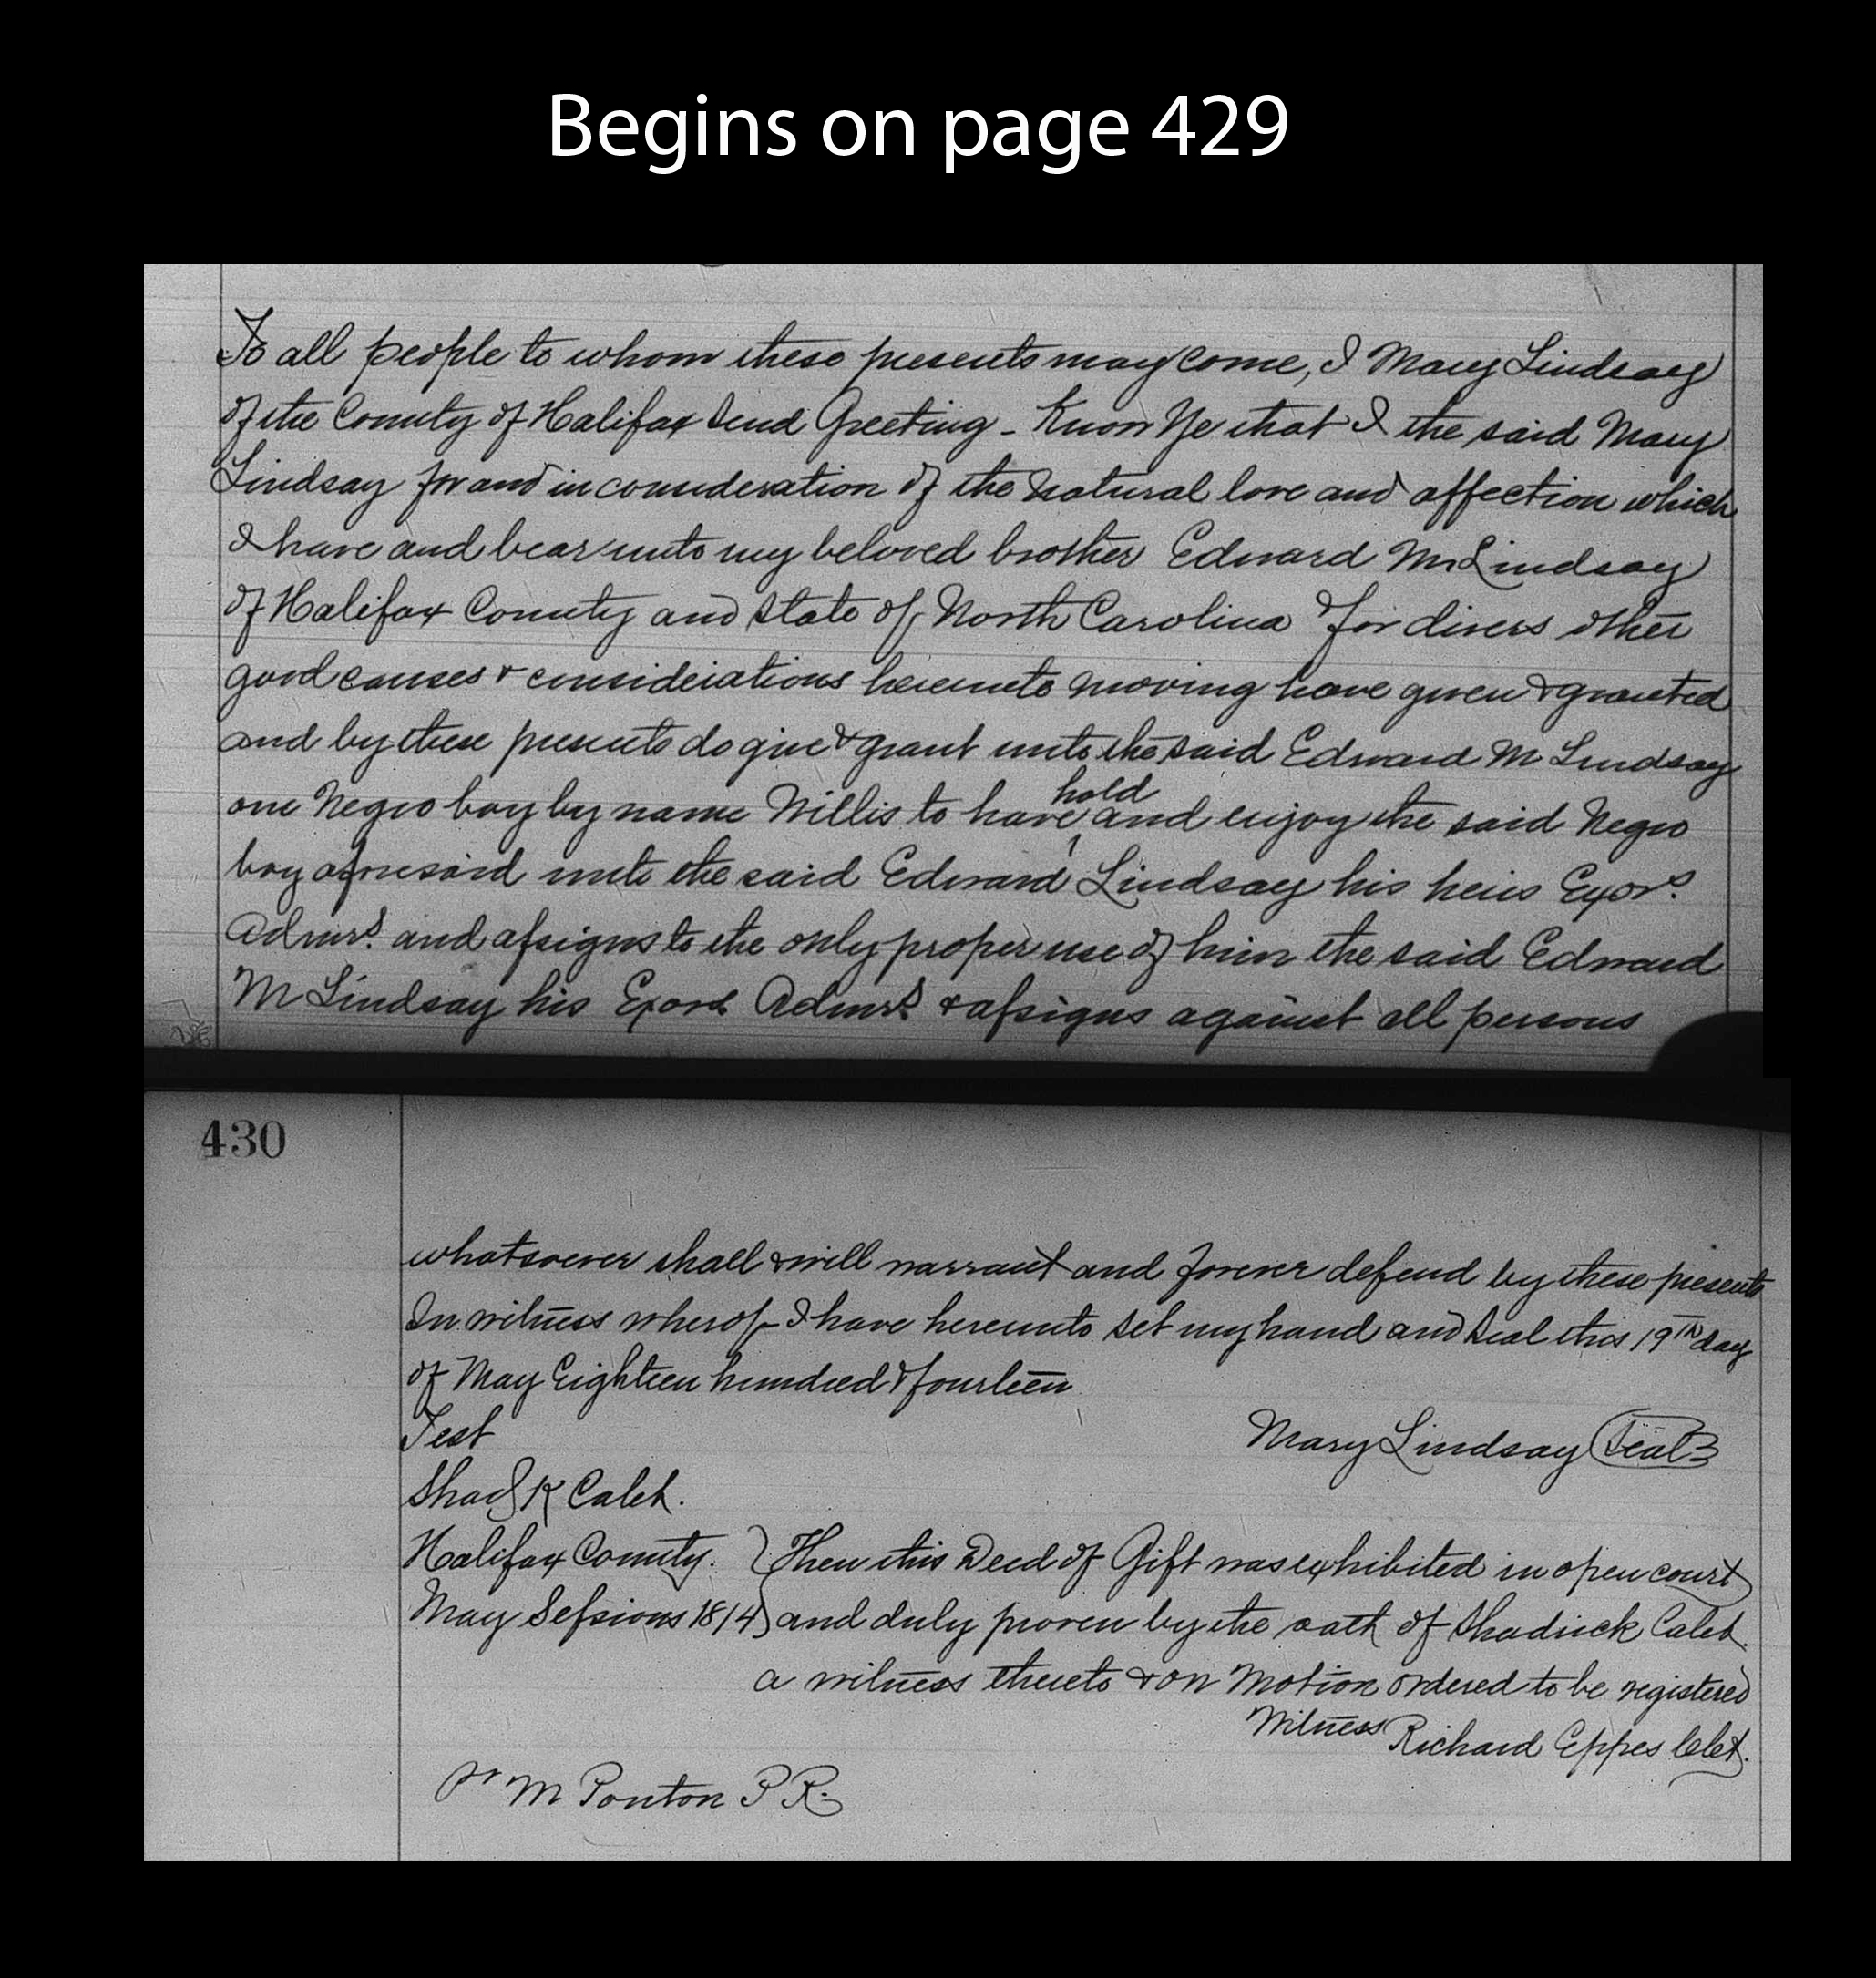 Begins on page 429
To all people to whom these presents may come, I Mary Lindsay
of the County of Halifax Send Greeting - Know Ye that I the said Mary
Lindsay for and in consideration of the Natural love and affection which
I have and bear unto my beloved brother Edward M Lindsay
of Halifax County and State of North Carolina & for divers other
good causes & considerations hereunto moving have given & granted
and by these presents do give & grant unto the said Edward M Lindsay
one Negro boy by name Willis to have hold and enjoy the said Negro
boy aforesaid unto the said Edward Lindsay his heirs Exors.
Admrs. and assigns to the only proper use of him the said Edward
M Lindsay his Exors Admrs. & assigns against all persons
430
whatsoever shall & will warrant and forever defend by these presents
In witness wherof I have hereunto set my hand and Seal this 19th day
of May Eighteen hundred & fourteen
Test Mary Lindsay Seal
Shad K Caleb.
Halifax County. } Then this Deed of Gift was exhibited in open court
May Sessions 1814 } and duly proven by the oath of Shadrick Caleb.
a witness thereto & on Motion ordered to be registered
Witness Richard Eppes Clet.
Pr M Ponton P R.